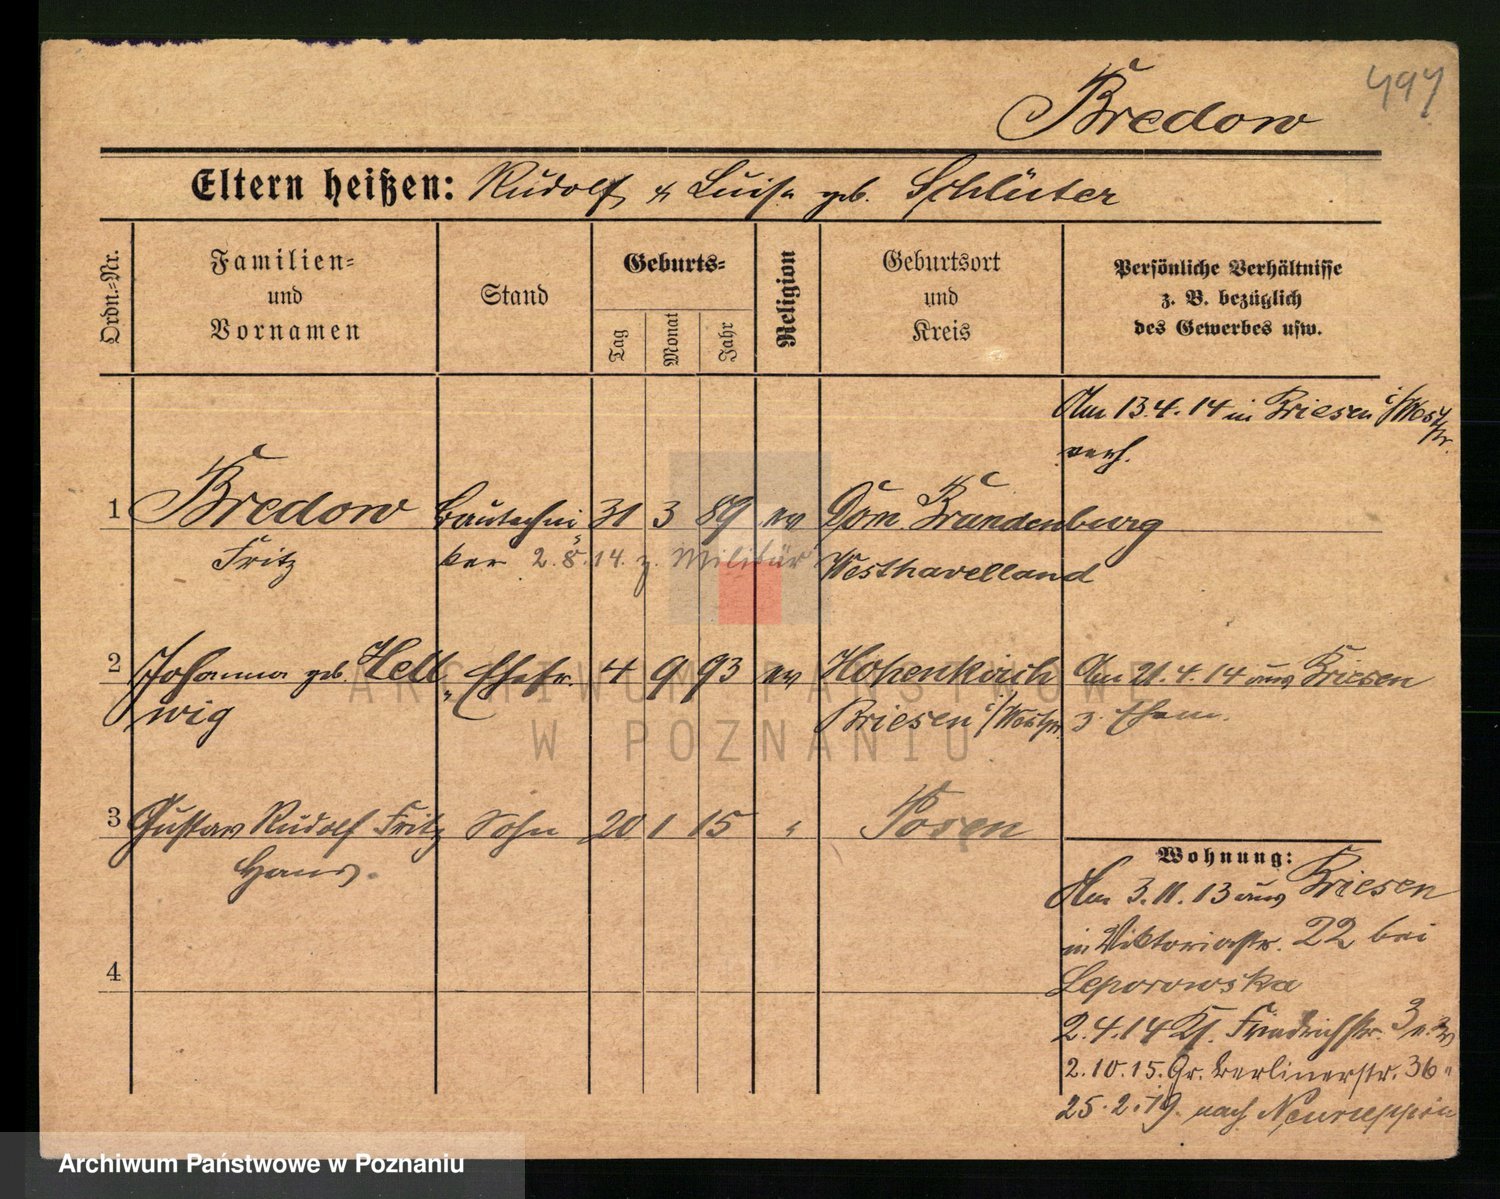 497
Bredow
Eltern heißen: Rudolf & Luise geb. Schlüter
Ordn.-Nr.
Familien-
und
Vornamen
Stand
Geburts-
Tag
Monat
Jahr
Religion
Geburtsort
und
Kreis
Persönliche Verhältnisse
z. B. bezüglich
des Gewerbes usw.
Am 13.4.14 in Briesen i/Westpr.
verh.
1 Bredow Bautechni- 31 3 89 ev Dom Brandenburg
Fritz ker 2.8.14. z. Militär Westhavelland
2 Johanna geb. Hell- Ehefr. 4 9 93 ev Hohenkirch Am 21.4.14 aus Briesen
wig Briesen i/Westpr. z. Ehem.
3 Gustav Rudolf Fritz Sohn 20 1 15 " Posen
Hans.
4
Wohnung:
Am 3.11.13 aus Briesen
in Viktoriastr. 22 bei
Leporowska
2.4.14 Kl. Friedrichstr. 3
2.10.15. Gr. Berlinerstr. 36
25.2.19. nach Neuruppin
ARCHIWUM PAŃSTWOWE
W POZNANIU
Archiwum Państwowe w Poznaniu